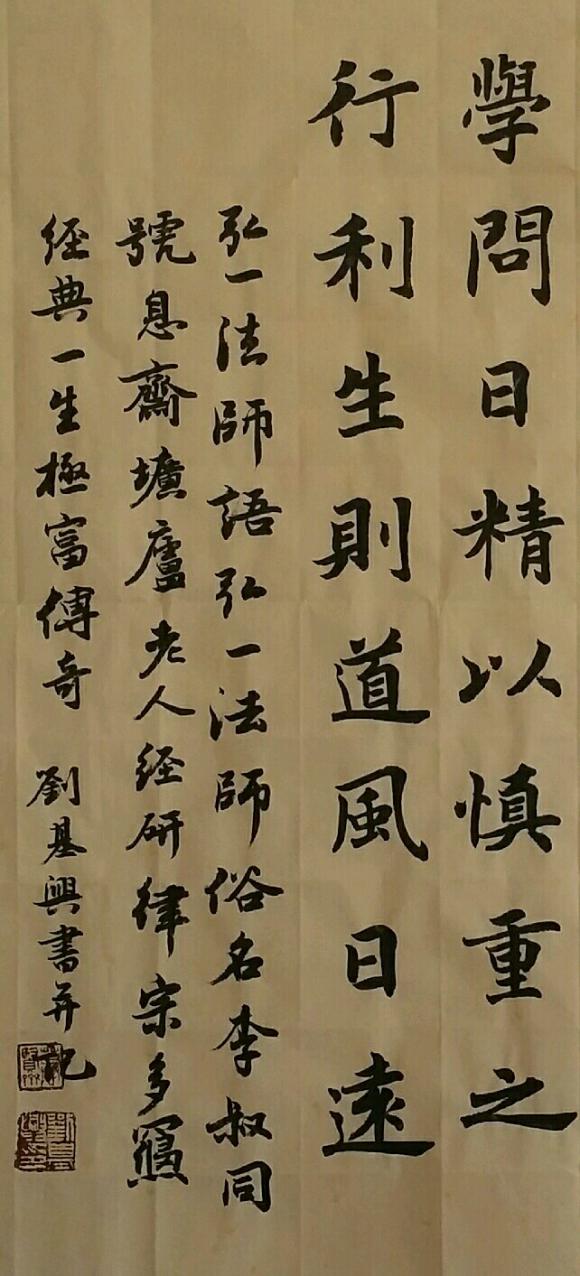 學問日精以慎重之
行利生則道風日遠
弘一法師語弘一法師俗名李叔同
號息齋壙廬老人経研律宗多
経典一生極富傳奇 劉基興書并记